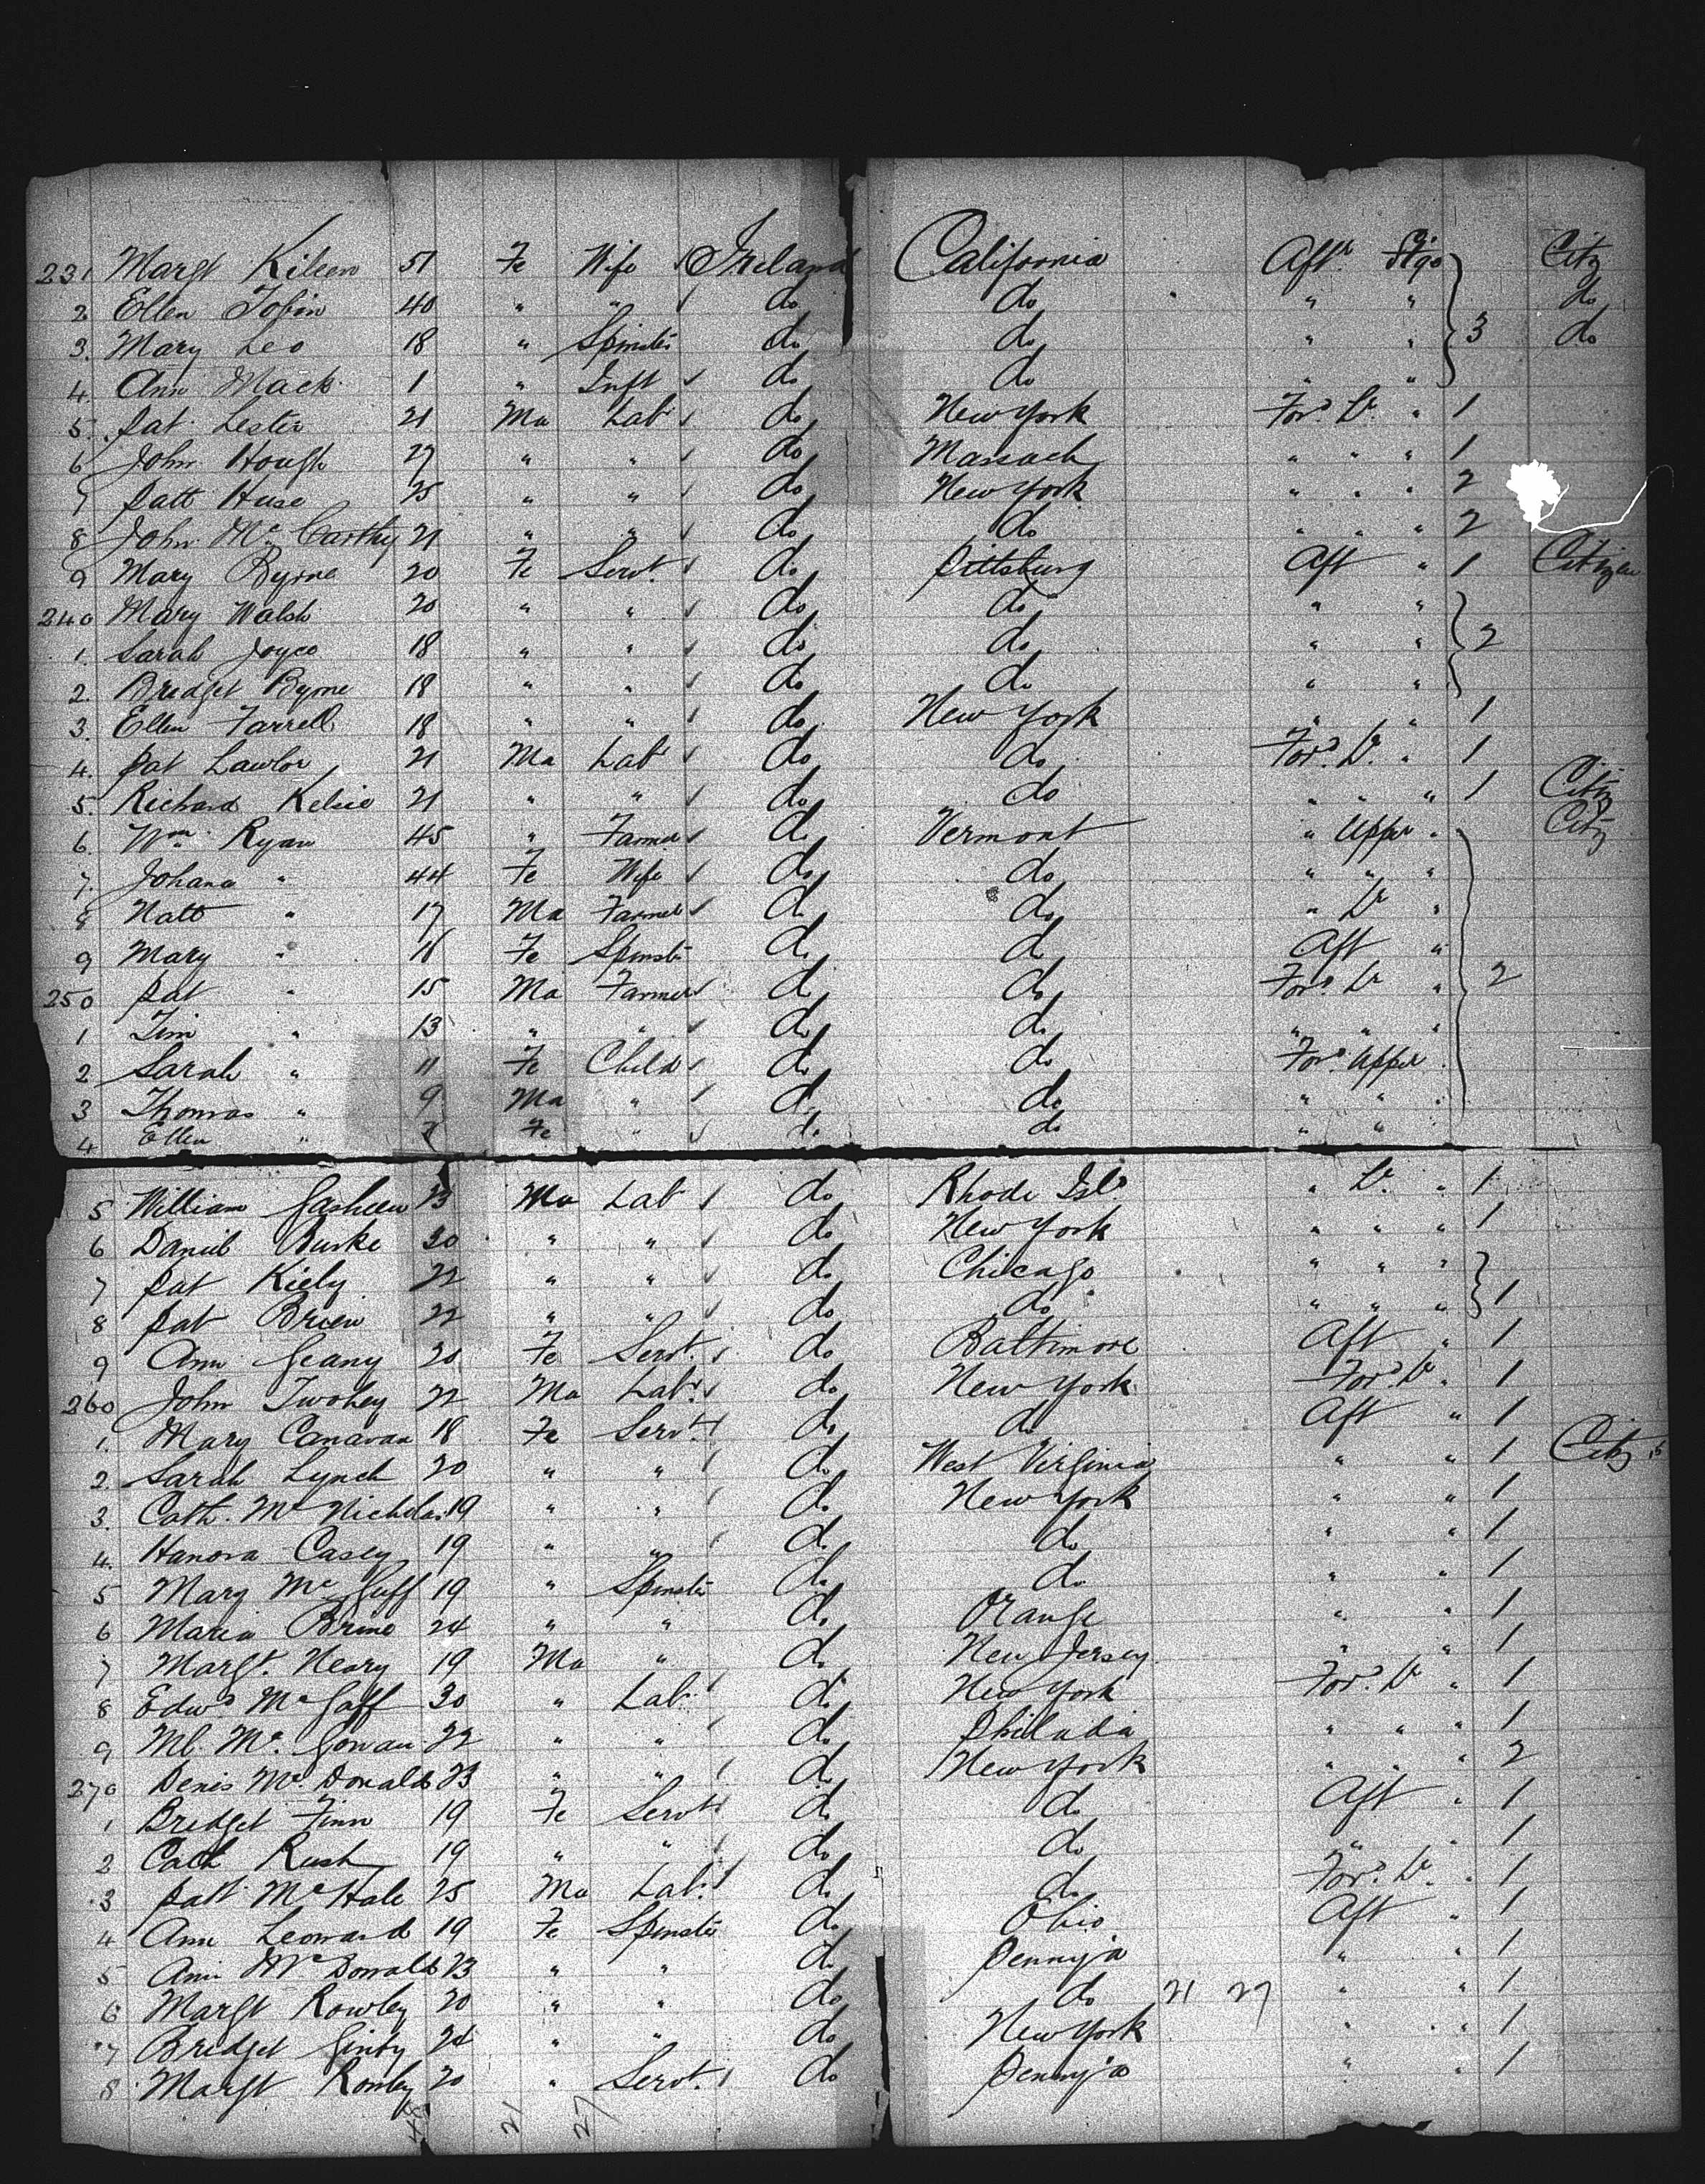 231 Margt Kileen 51 Fe Wife Ireland California Aft Stge City
2 Ellen Tobin 40 " " do do " " do
3. Mary Leo 18 " Spinster do do " " 3 do
4. Ann Mack 1 " Inft do do " "
5. Pat Lester 21 Ma Lab do New York Ford Lr " 1
6 John Hough 27 " " do Massach " " " 1
7 Patt Huse 25 " " do New York " " " 2
8 John Mc Carthy 21 " " do do " " " 2
9 Mary Byrne 20 Fe Servt. do Pittsburg Aft " 1 Citizen
240 Mary Walsh 20 " " do do " "
1. Sarah Joyce 18 " " do do " " 2
2. Bridget Byrne 18 " " do do " "
3. Ellen Farrell 18 " " do New York " " 1
4. Pat Lawlor 21 Ma Lab do do Ford Lr " 1
5. Richard Kelie 21 " " do do " " " 1 City
6. Wm Ryan 45 " Farmer do Vermont " Upper " City
7. Johana " 44 Fe Wife do do " " "
8 Natt " 17 Ma Farmer do do " Lr "
9 Mary " 16 Fe Spinster do do Aft "
250 Pat " 15 Ma Farmer do do Ford Lr " 2
1 Tim " 13 " " do do " " "
2 Sarah " 11 Fe Child do do Ford Upper "
3 Thomas " 9 Ma " do do " " "
4 Ellen " 7 Fe " do do " "
5 William Gasheen 23 Ma Lab do Rhode Isld " Lr " 1
6 Daniel Burke 30 " " do New York " " " 1
7 Pat Kiely 22 " " do Chicago " " "
8 Pat Brien 22 " " do do " " " 1
9 Ann Geany 20 Fe Servt. do Baltimore Aft " 1
260 John Twohey 22 Ma Lab. do New York Ford Lr " 1
1. Mary Canavan 18 Fe Servt. do do Aft " 1
2. Sarah Lynch 20 " " do West Virginia " " 1 City
3. Cath. Mc Nicholas 19 " " do New York " " 1
4. Hanora Casey 19 " " do do " " 1
5 Mary Mc Guff 19 " Spinster do do " " 1
6 Maria Brine 24 " " do Orange " " 1
7 Margt. Neary 19 Ma " do New Jersey " " 1
8 Edwd Mc Gaff 30 " Lab. do New York Ford Lr " 1
9 Ml. Mc Gowan 22 " " do Philada " " " 1
270 Denis Mc Donald 23 " " do New York " " " 2
1 Bridget Finn 19 Fe Servt do do Aft " 1
2 Cath Rush 19 " " do do " " 1
3 Patt Mc Hale 25 Ma Lab. do do Ford Lr " 1
4 Ann Leonard 19 Fe Spinster do Ohio Aft " 1
5 Ann Mc Donald 23 " " do Pennya " " 1
6 Margt Rowley 20 " " do do 21 27 " " 1
7 Bridget Ginty 24 " " do New York " " 1
8 Margt Rowley 20 " Servt. do Pennya " " 1
21 27